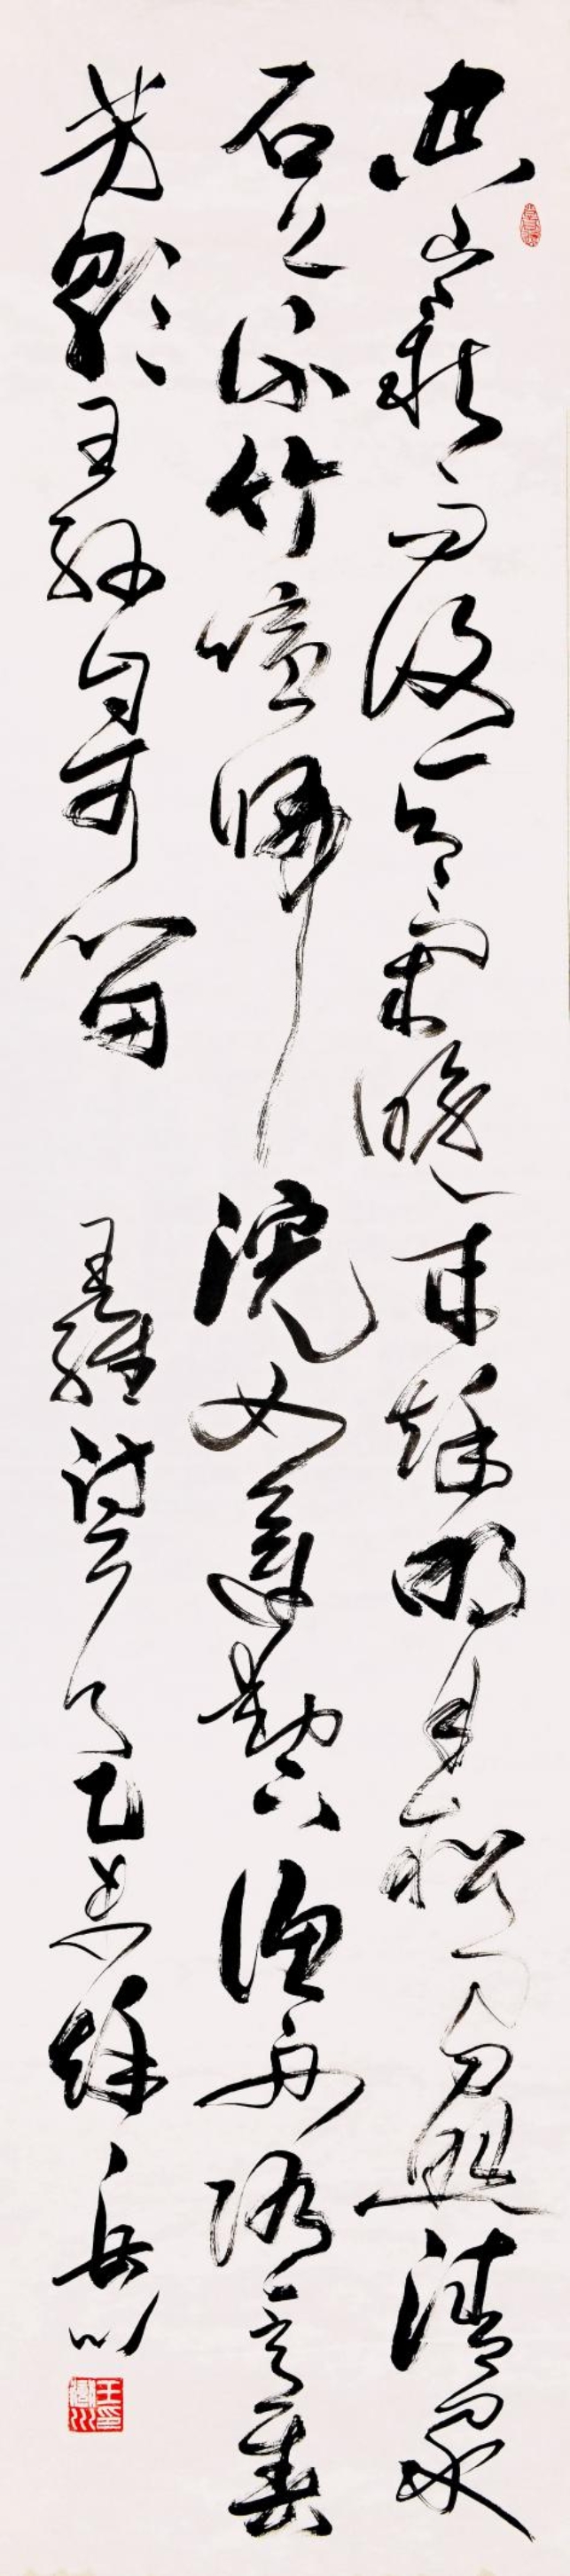 空山新雨後天氣晚來秋明月松間照清泉
石上流竹喧歸浣女蓮動下漁舟隨意春
芳歇王孫自可留 王維詩 乙 秋 岳川